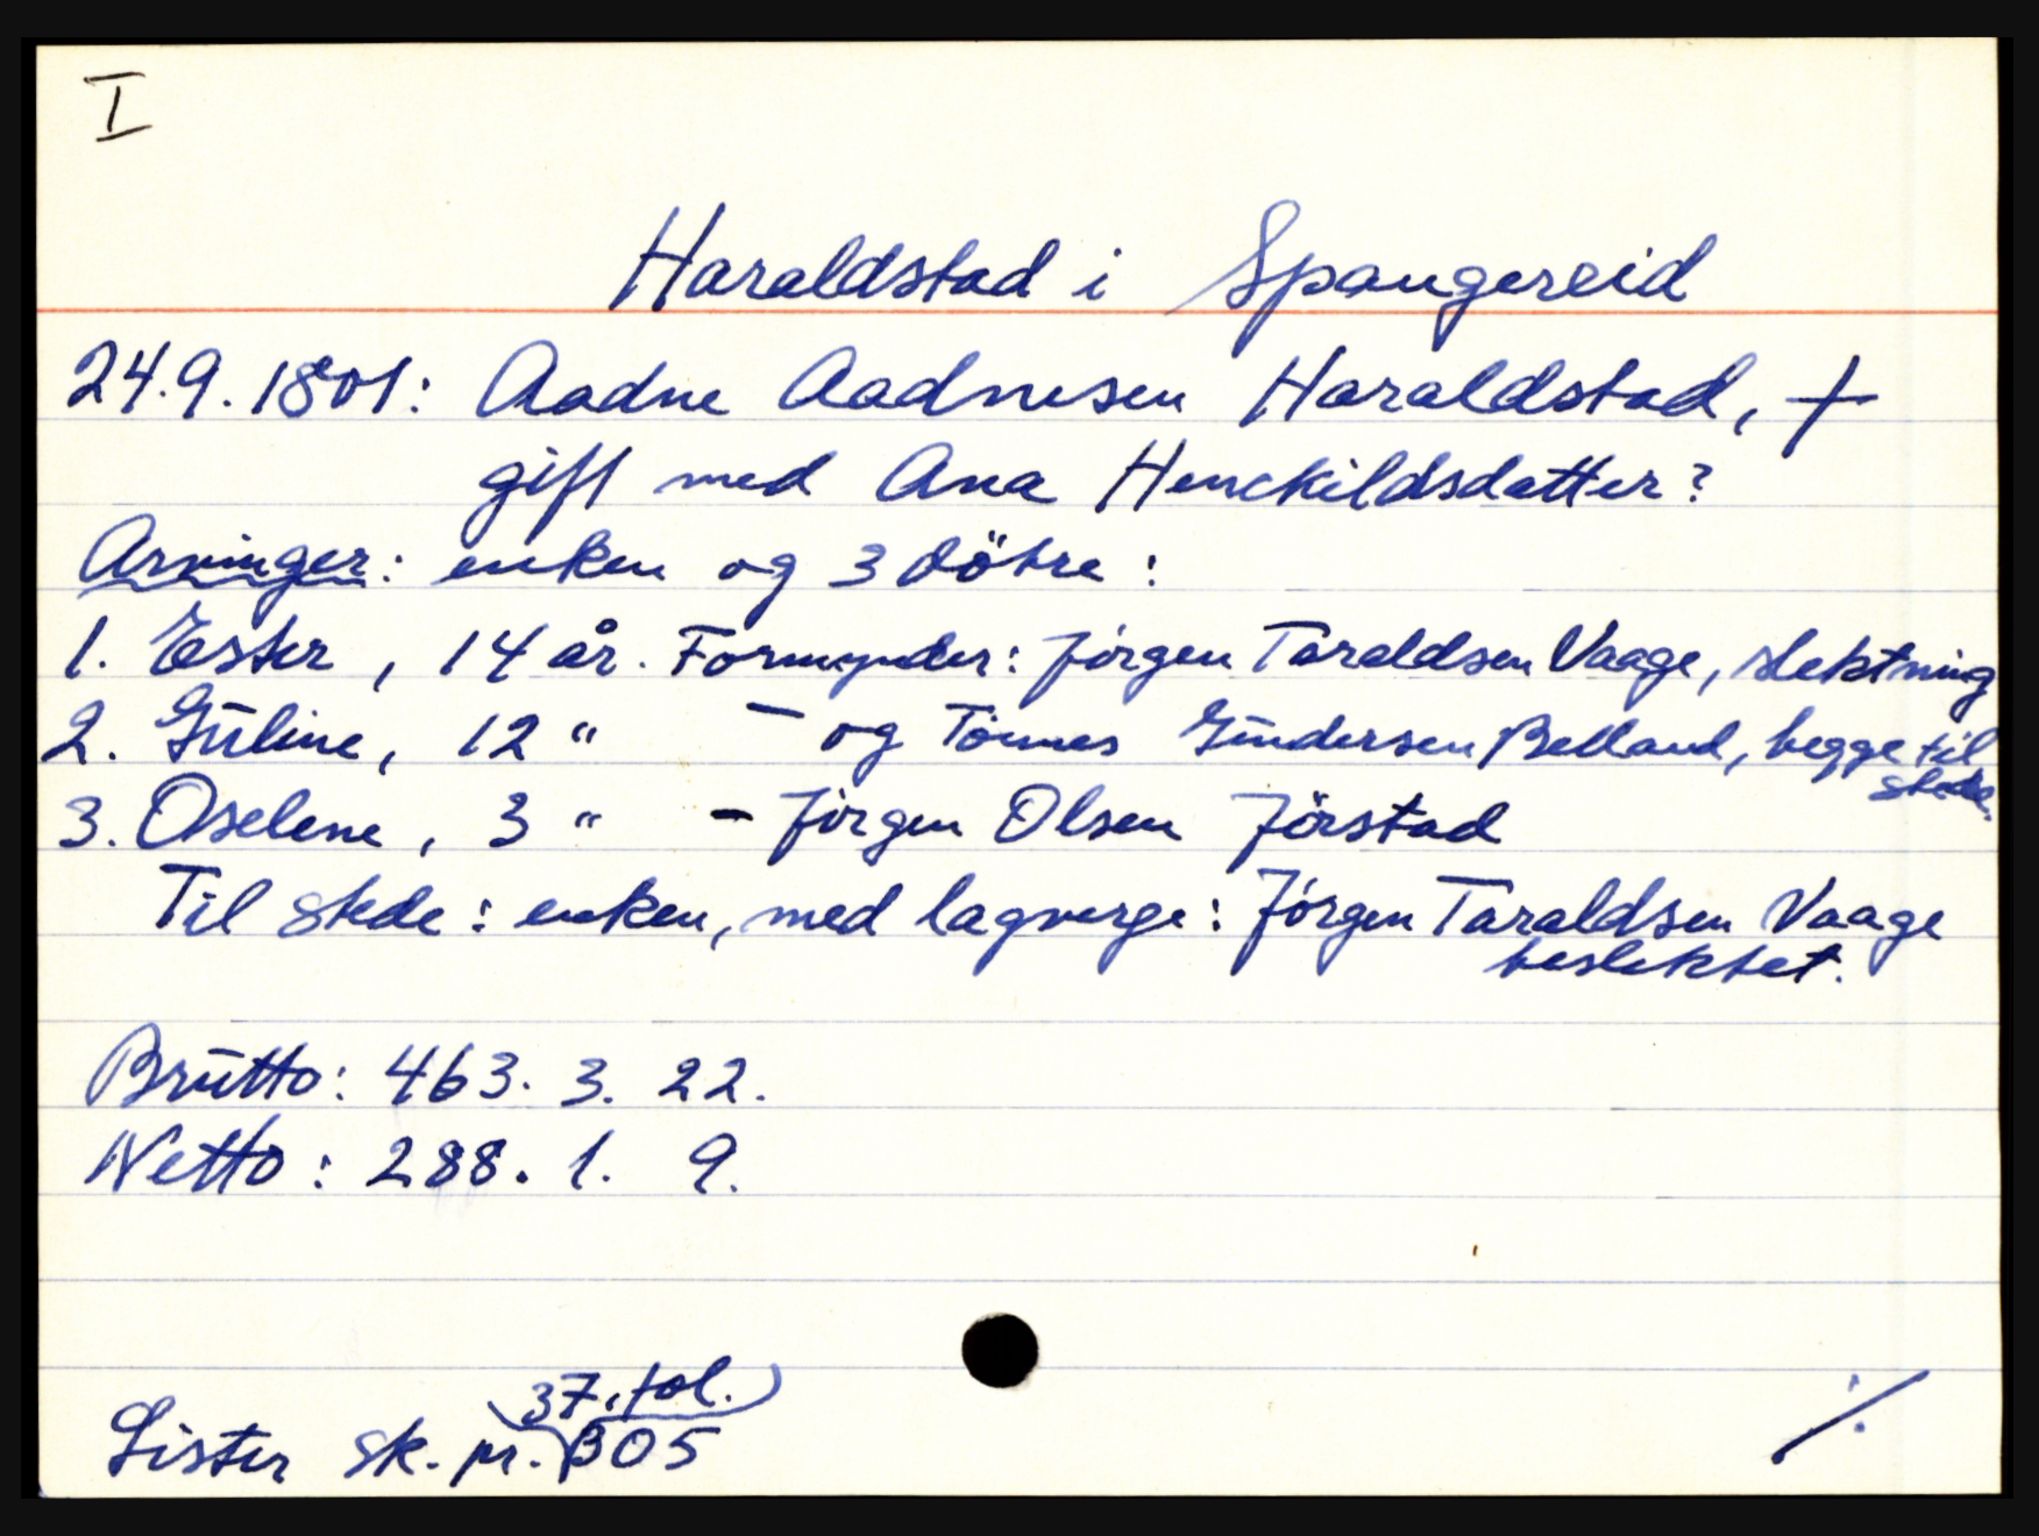 I
Haraldstad i Spangereid
24.9.1801: Aadne Aadnesen Haraldstad, +
gift med Ana Henckildsdatter?
Arvinger: enken og 3 döbre:
1. Ester, 14 år. Formynder: Jörgen Taraldsen Vaage, slektning
2. Guline, 12 " — og Tönnes Gundersen Belland, begge til stede.
3. Oselene, 3 " - Jörgen Olsen Jörstad
Til stede: enken, med lagverge: Jörgen Taraldsen Vaage
beslektet.
Brutto: 463. 3. 22.
Netto: 288. 1. 9.
37, fol.)
Lister sk. pr. 305
./.